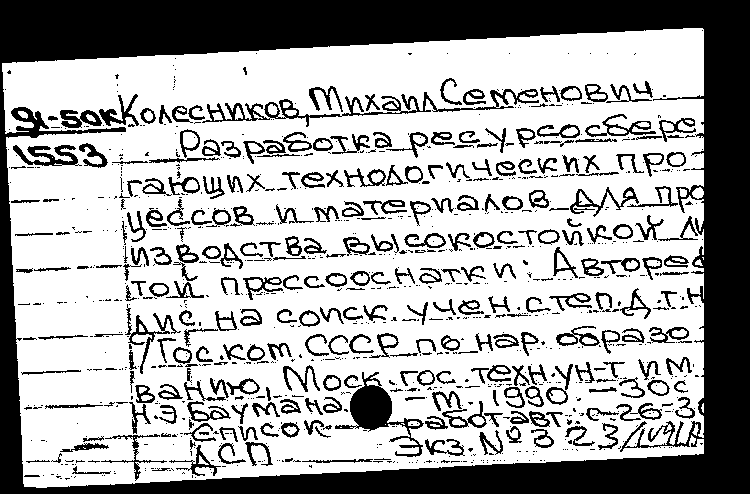 91-50к Колесников, Михаил Семенович.
1553 Разработка ресурсосбере-
гающих технологических про-
цессов и материалов для про
изводства высокостойкой ли
той прессооснатки: Автореф
дис. на соиск. учен. степ. д.т.н
/Гос. ком. СССР по нар. образо
ванию, Моск. гос. техн. ун-т им
Н.Э. Баумана. - М., 1990. - 30с
Список работ авт.: с-26-30
ДСП Экз. № 323